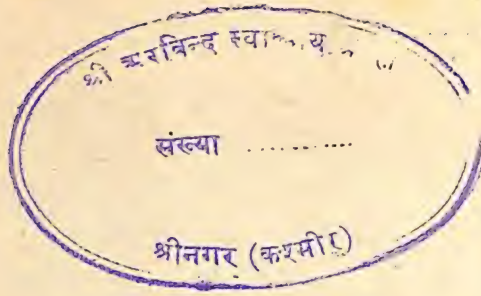 श्री अरविन्द
संख्या ............
श्रीनगर (कश्मीर)